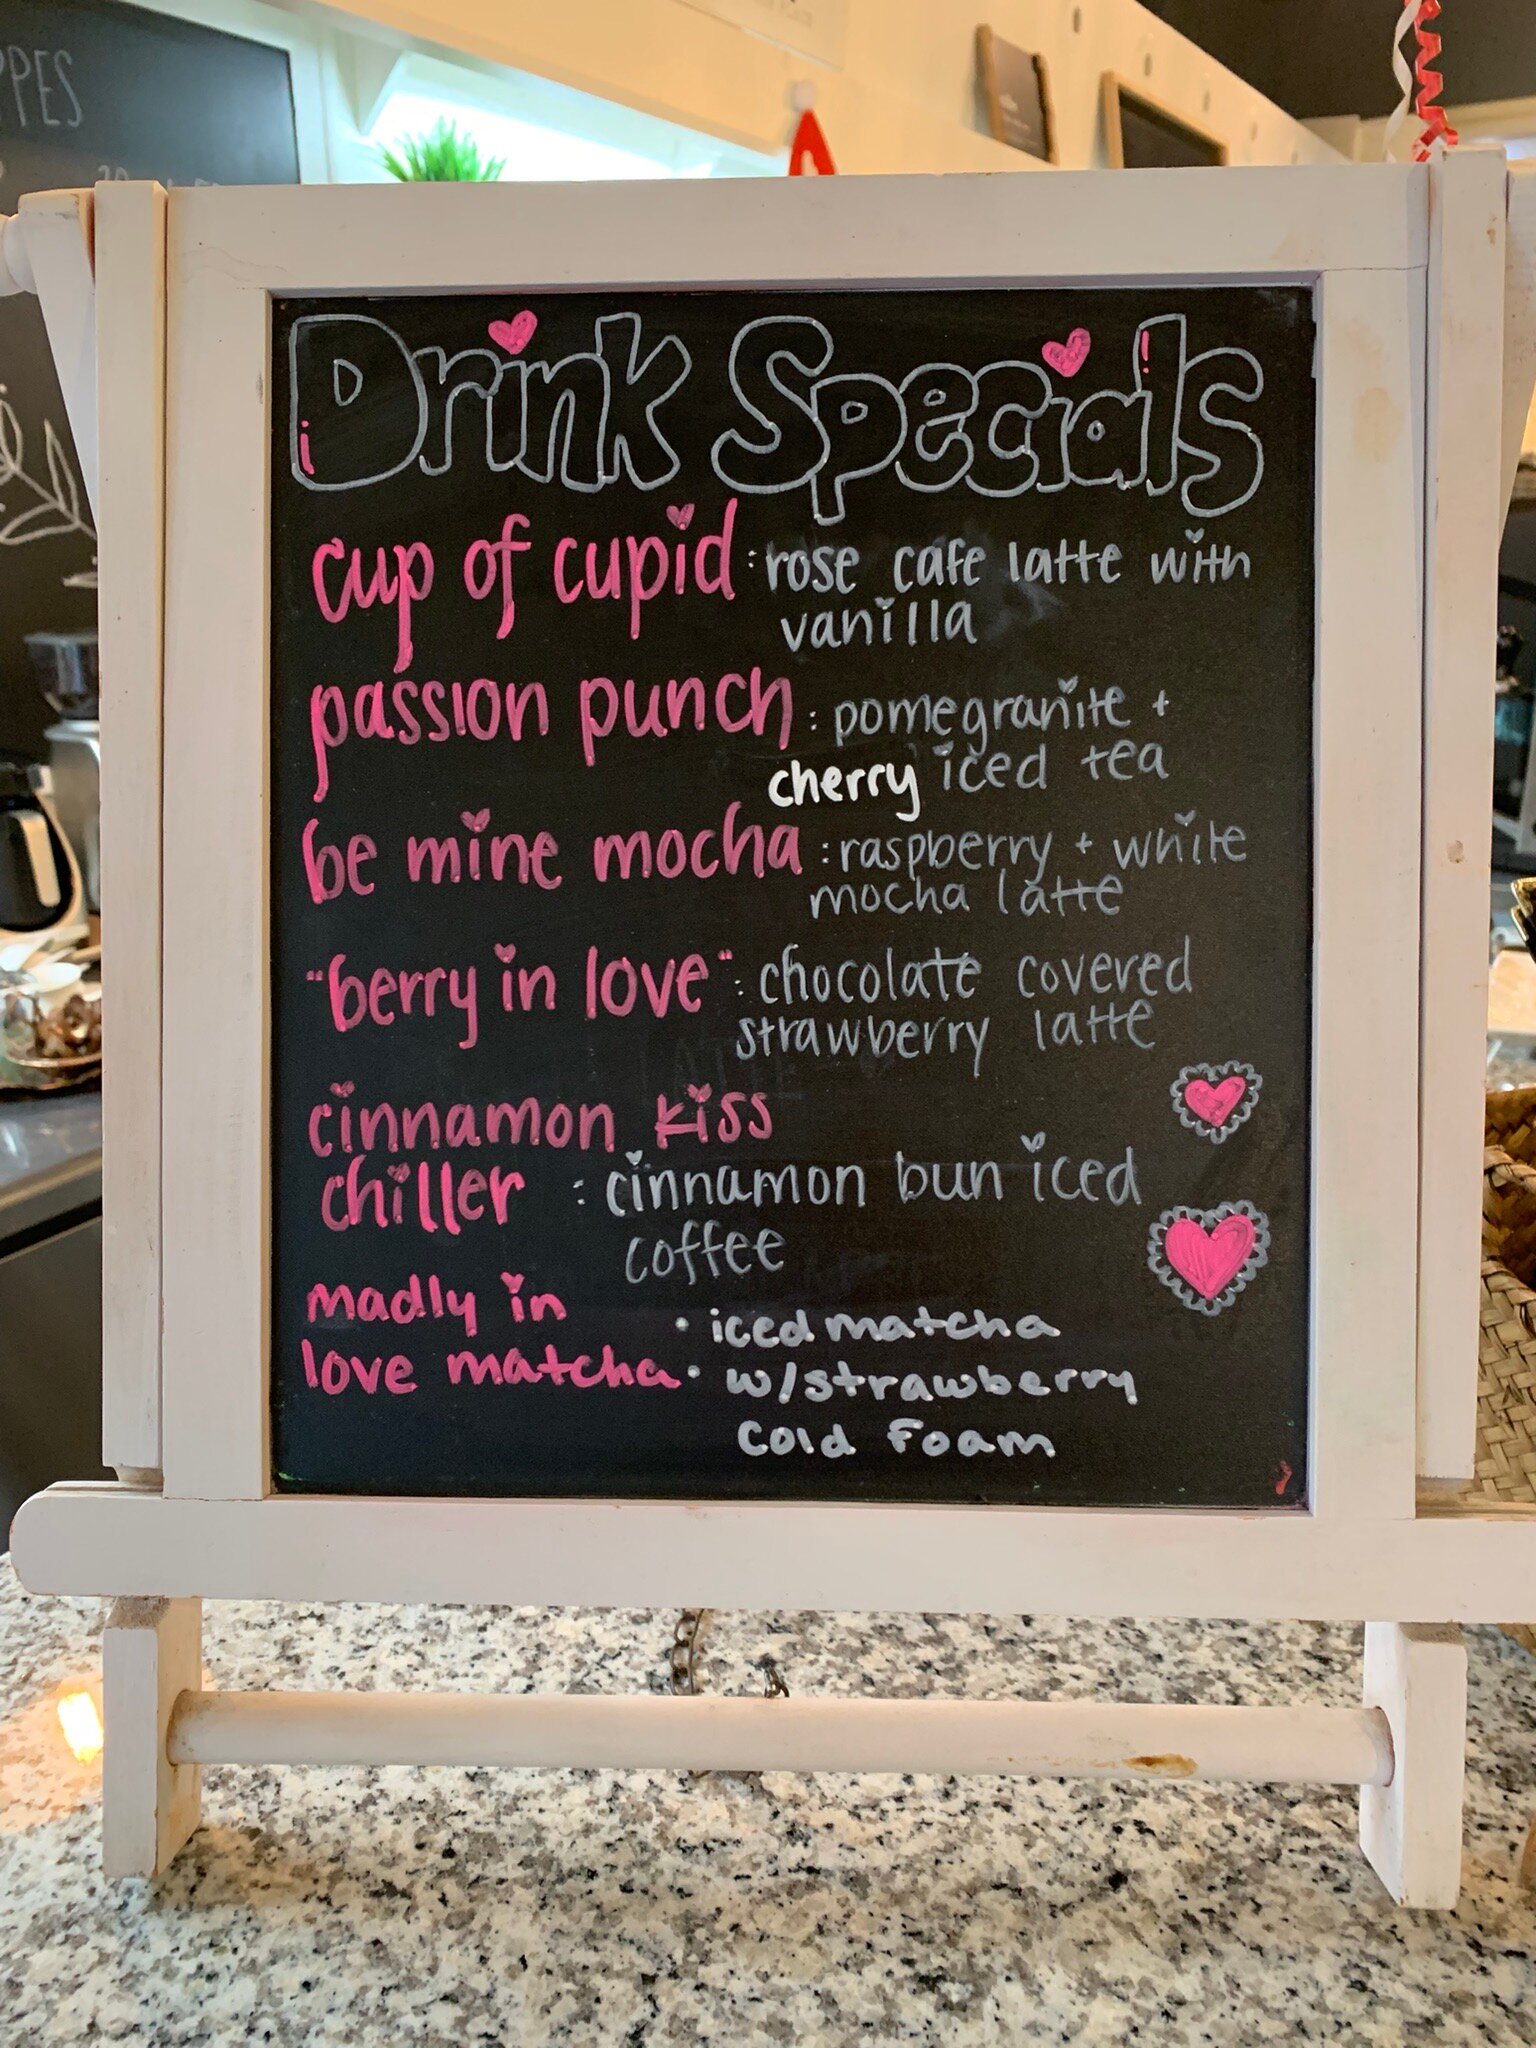 PPES
Drink Specials
cup of cupid : rose cafe latte with
vanilla
passion punch : pomegranite +
cherry iced tea
be mine mocha : raspberry + white
mocha latte
"berry in love" : chocolate covered
strawberry latte
cinnamon kiss
chiller : cinnamon bun iced
coffee
madly in
love matcha : iced matcha
w/strawberry
cold foam